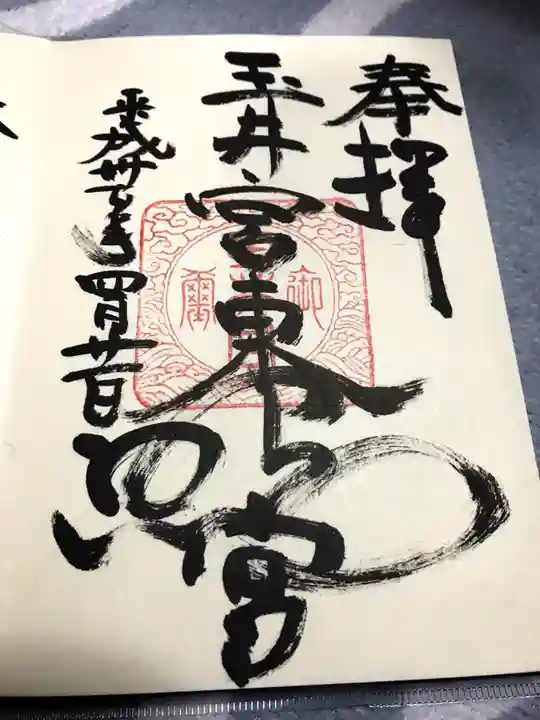 奉拝
玉井宮東照宮
平成卅一年四月廿一日